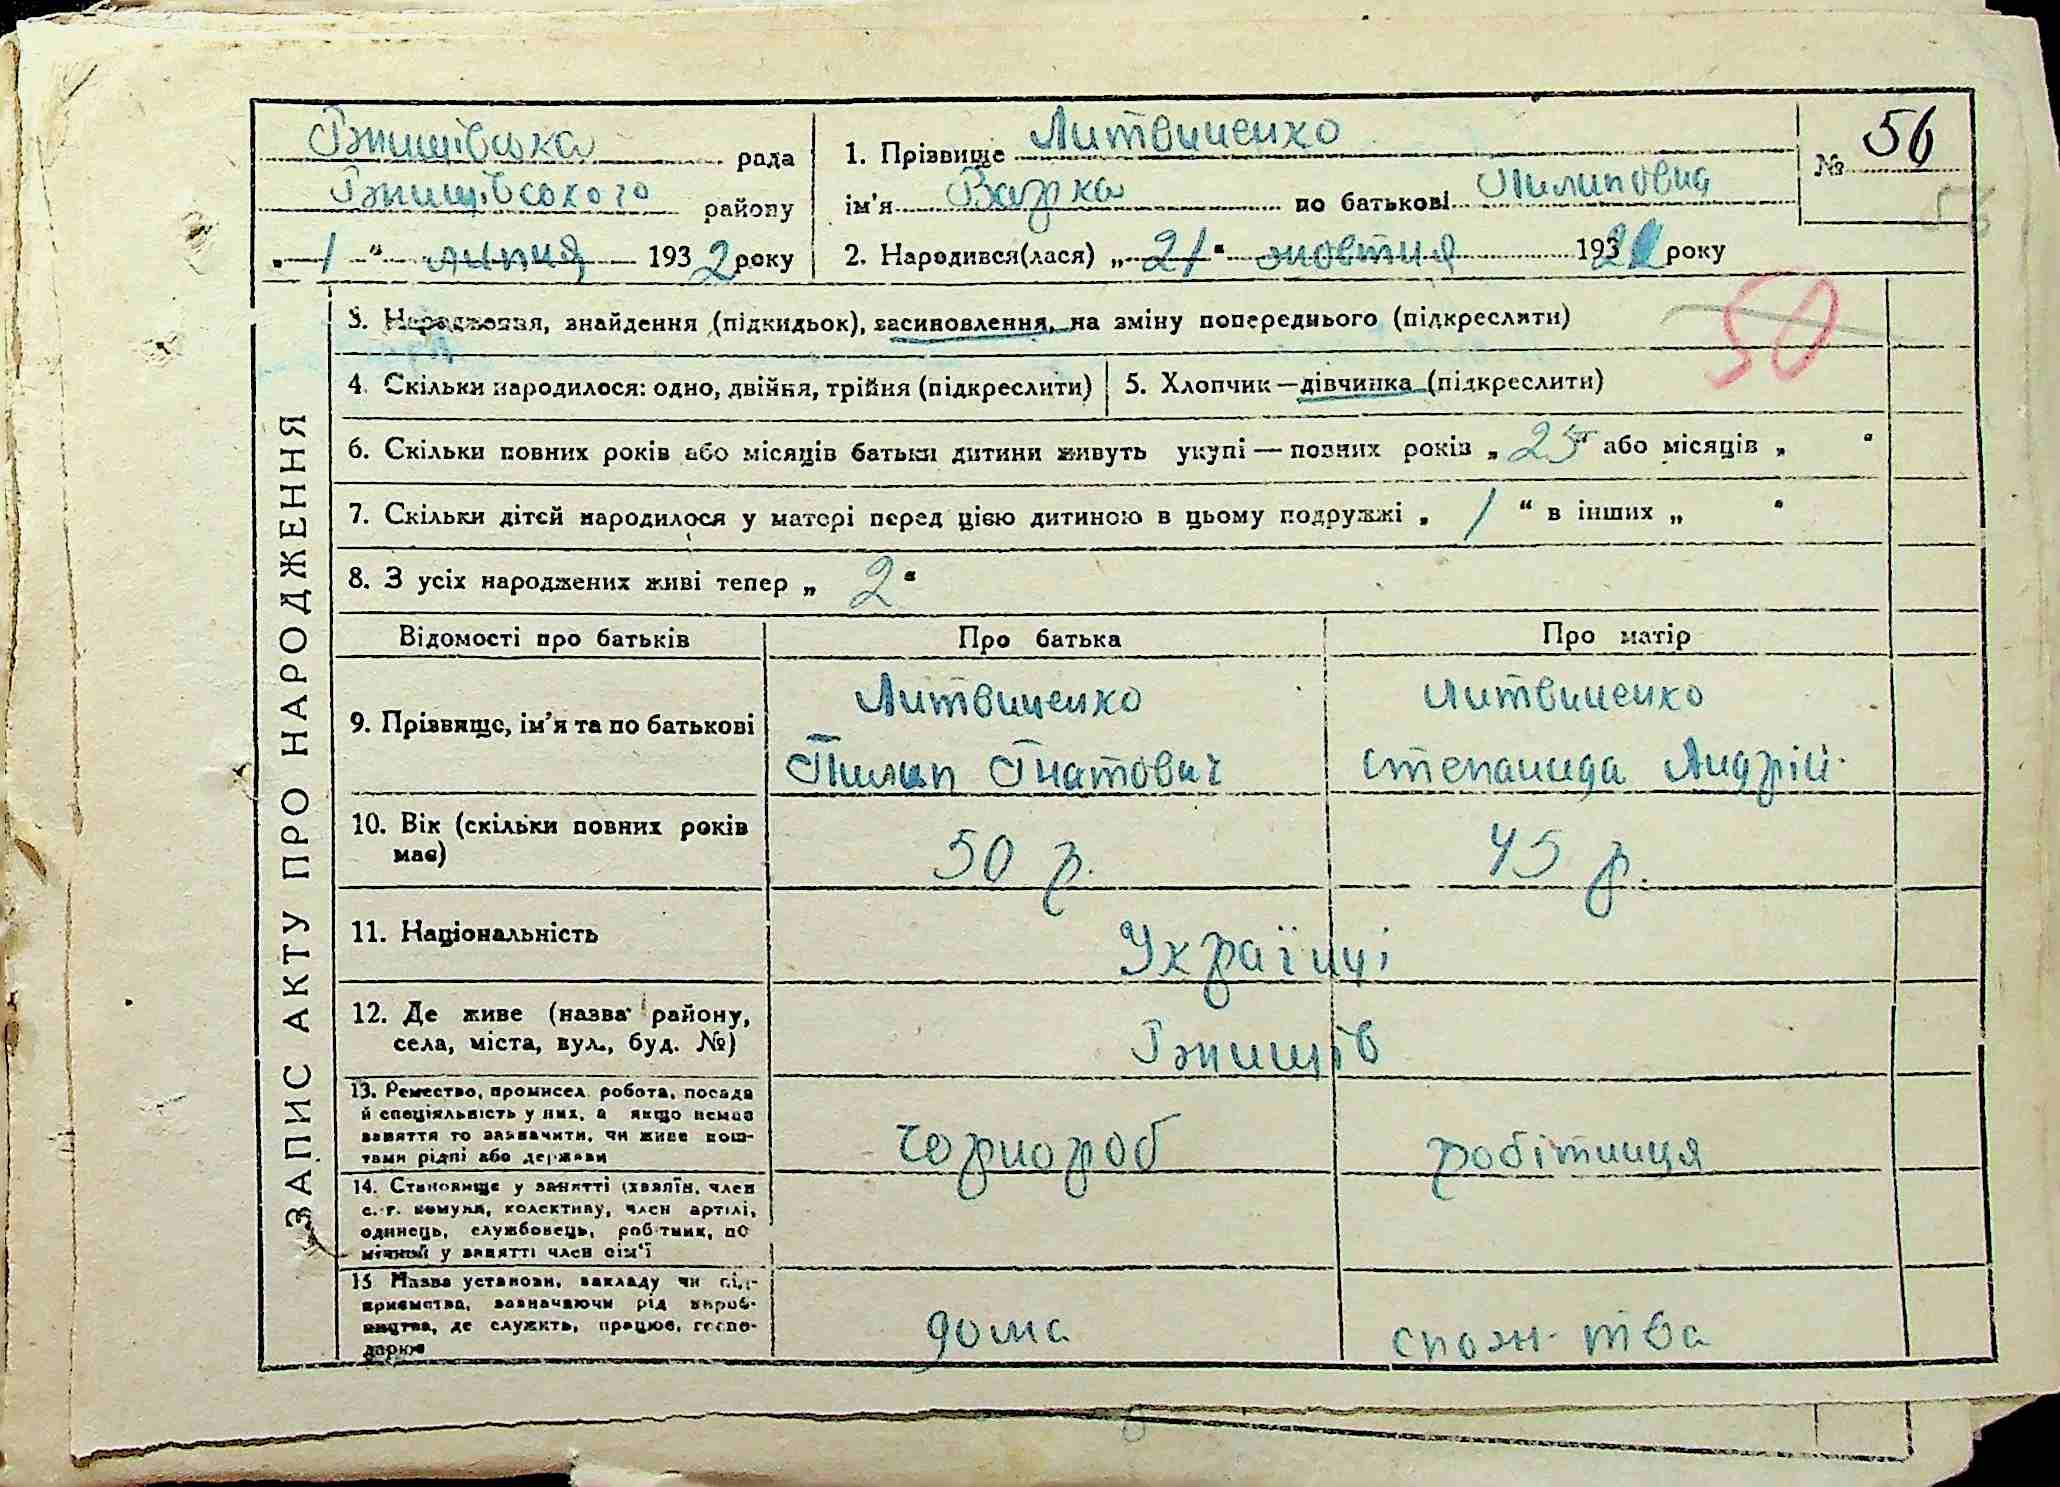 Ржищівська рада
Ржищівського району
„ 1 “ липня 1932 року
1. Прізвище Литвиненко
ім'я Варка по батькові Пилиповна
2. Народився(лася) „ 21 “ жовтня 193 року
№ 56
56
50
ЗАПИС АКТУ ПРО НАРОДЖЕННЯ
3. Народження, знайдення (підкидьок), засиновлення, на зміну попереднього (підкреслити)
4. Скільки народилося: одно, двійня, трійня (підкреслити)
5. Хлопчик—дівчинка (підкреслити)
6. Скільки повних років або місяців батьки дитини живуть укупі — повних років „ 25 “ або місяців „ “
7. Скільки дітей народилося у матері перед цією дитиною в цьому подружжі „ 1 “ в інших „ “
8. З усіх народжених живі тепер „ 2 “
Відомості про батьків
Про батька
Про матір
9. Прізвище, ім'я та по батькові
Литвиненко
Пилип Гнатович
Литвиненко
Степанида Андрій.
10. Вік (скільки повних років
має)
50 р.
45 р.
11. Національність
Українці
12. Де живе (назва району,
села, міста, вул., буд. №)
Ржищів
13. Ремество, промисел, робота, посада
й спеціяльність у них, а якщо немає
заняття то зазначити, чи живе кош-
тами рідні або держави
чорнороб
робітниця
14. Становище у занятті (хазяїн, член
с.-г. комуни, колективу, член артілі,
одинець, службовець, робітник, по
мічний у занятті член сім'ї
15 Назва установи, закладу чи під-
приємства, зазначаючи рід вироб-
ництва, де служить, працює, госпо-
дарює
дома
спож-тва